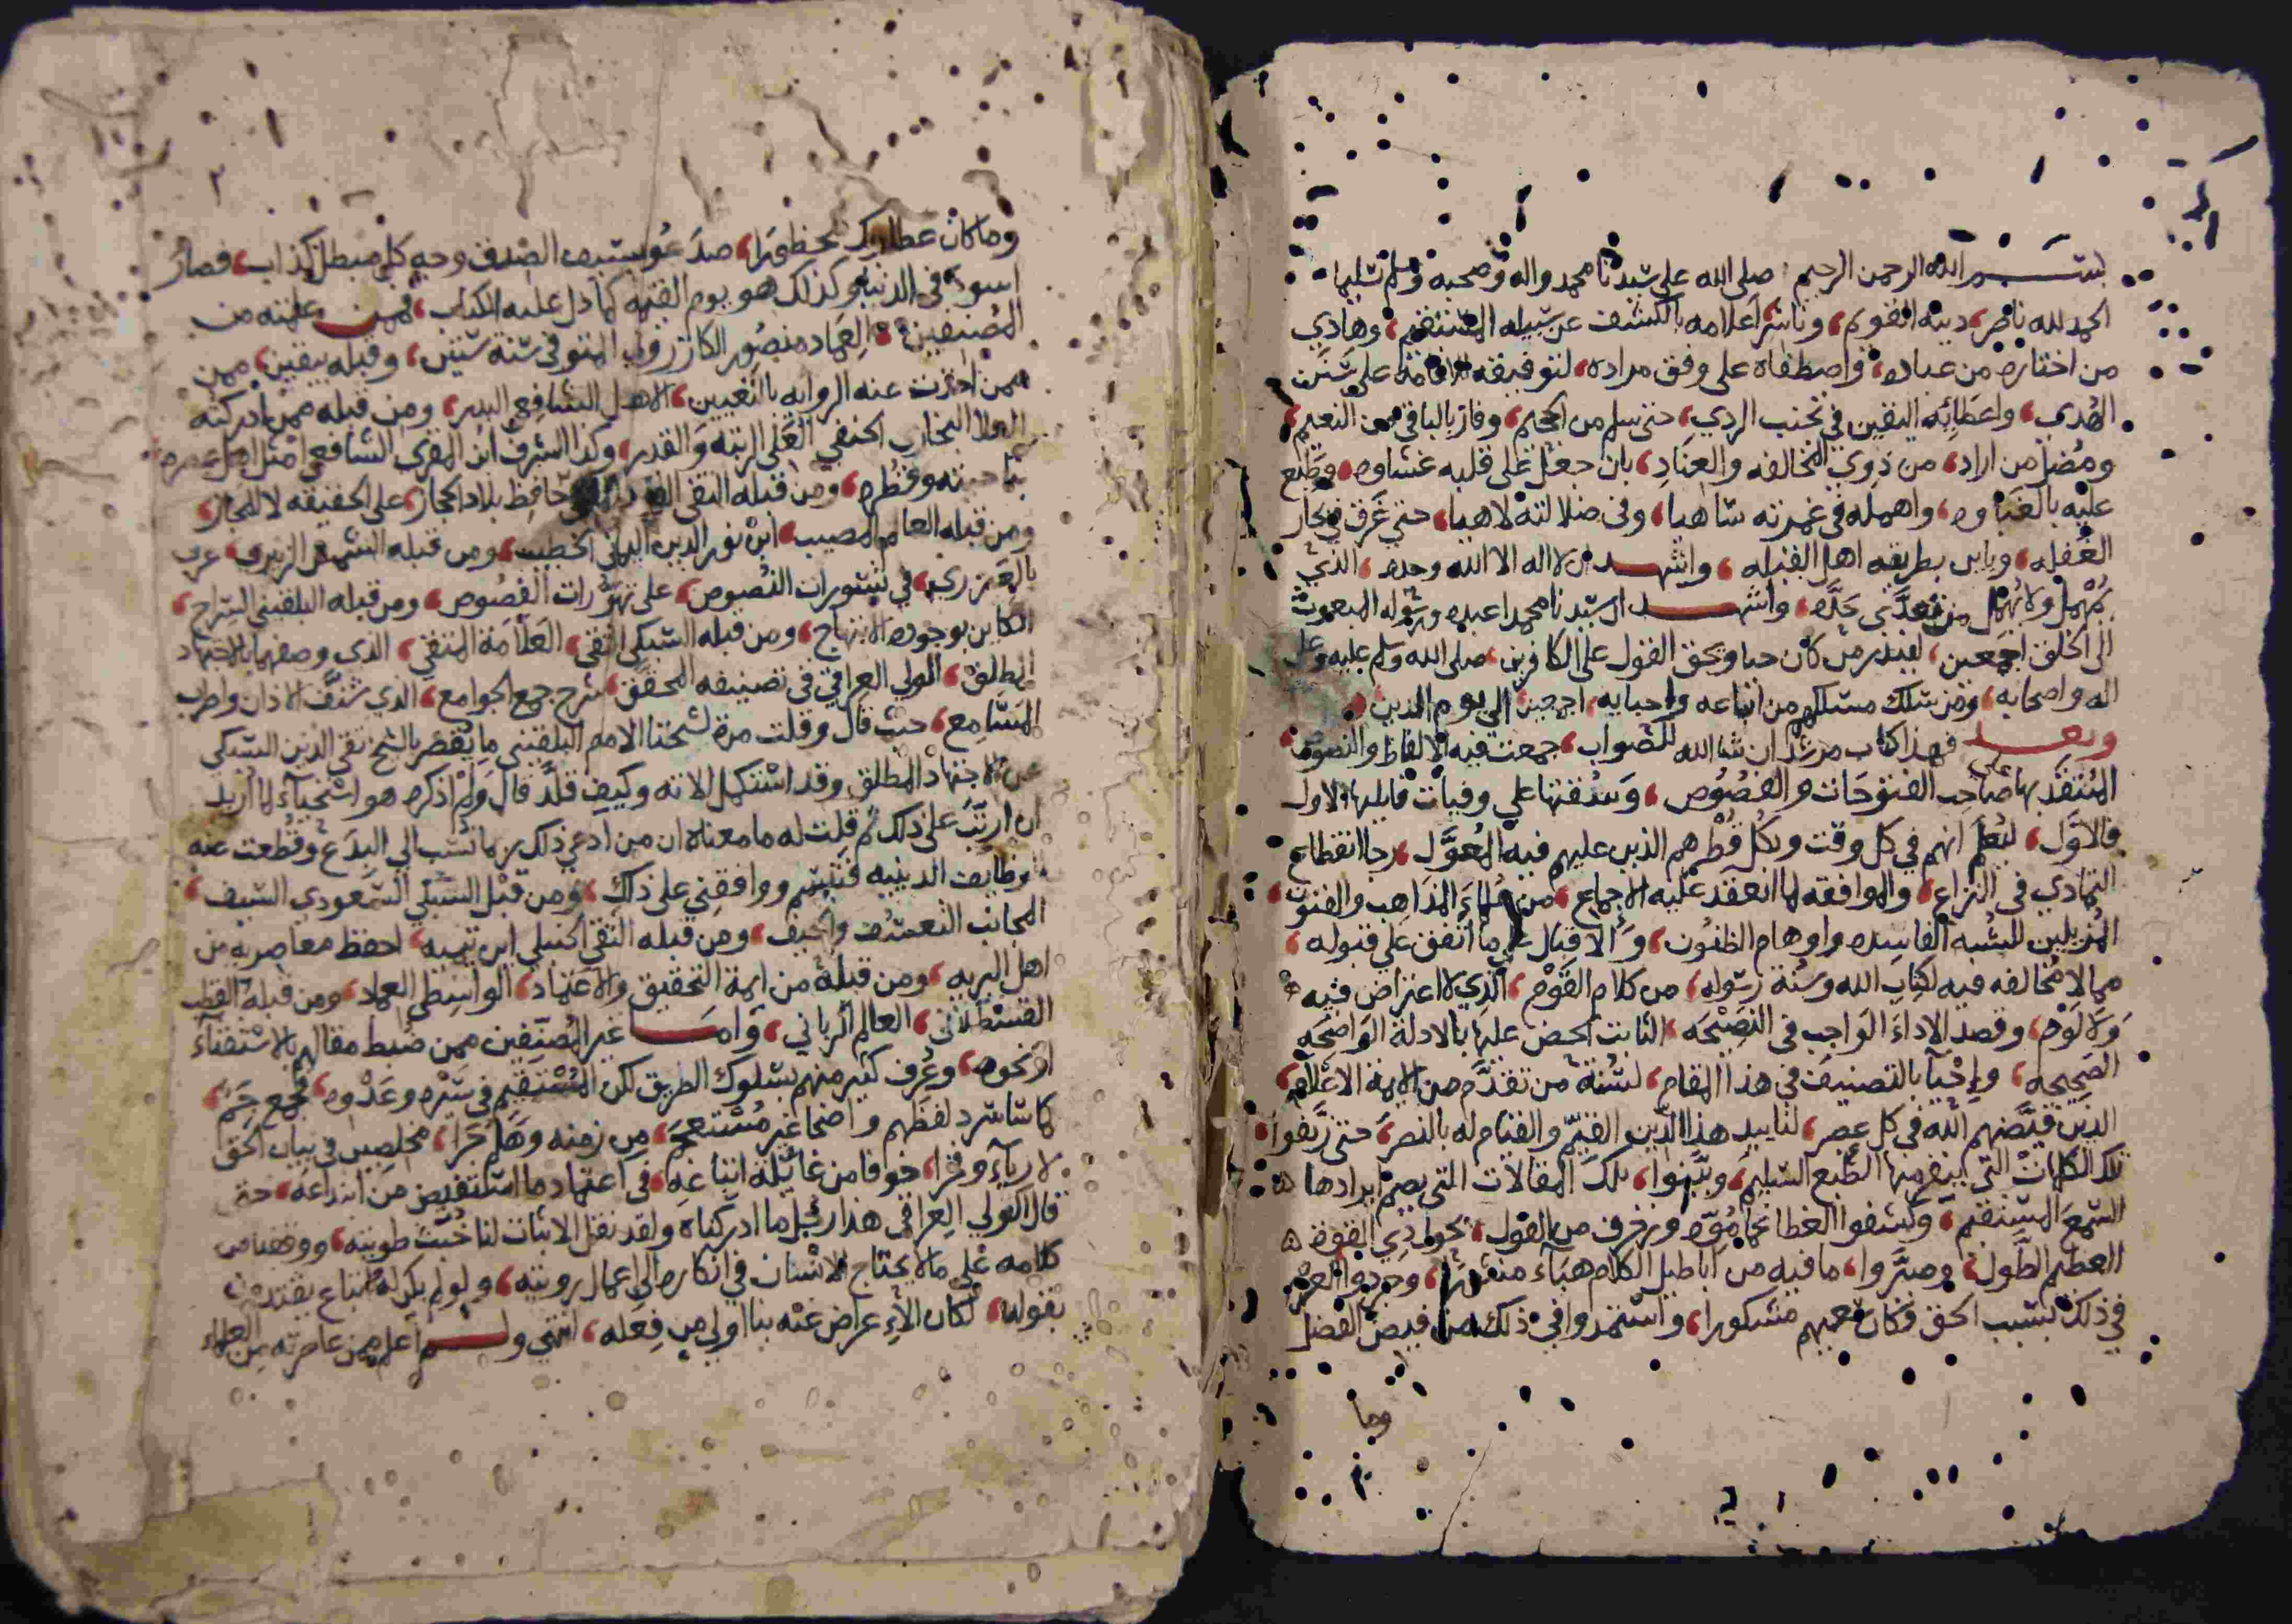 بسم الله الرحمن الرحيم صلى الله على سيدنا محمد واله وصحبه وسلم تسليما
الحمد لله ناصر دينه القويم، وناشر اعلامه بالكشف عن سبيله المستقيم، وهادي
من اختاره من عباده، واصطفاه على وفق مراده، لتوفيقه للاقامة على سنن
الهدى، واعطائه اليقين في تجنب الردي، حتى سلم من الجحيم، وفاز بالباقي من النعيم،
ومضل من اراد، من ذوي المخالفه والعناد، بان جعل على قلبه غشاوه، وطبع
عليه بالغباوه، واهمله في غمرته ساهيا، وفي ضلالته لاهيا، حتى غرق في بحار
الغفله، وباين بطريقه اهل القبله، واشهد ان لا اله الا الله وحده، الذي
يمهل ولا يهمل من تعدى حده، واشهد ان سيدنا محمدا عبده ورسوله المبعوث
الى الخلق اجمعين، لينذر من كان حيا ويحق القول على الكافرين، صلى الله وسلم عليه وعلى
اله واصحابه، ومن سلك مسلكهم من اتباعه واحبابه، اجمعين الى يوم الدين
وبعد فهذا كتاب مرشد ان شا الله للصواب، جمعت فيه الالفاظ والنصوص
المنتقد بها على صاحب الفتوحات والفصوص، وسقتها على وفيات قايليها الاول
فالاول، ليعلم انهم في كل وقت وبكل قطر هم الذين عليهم فيه المعول، رجا انقطاع
التمادي في النزاع، والموافقه لما انعقد عليه الاجماع، من علماء المذاهب والفنون،
المزيلين للشبه الفاسده واوهام الظنون، والاقبال على ما اتفق على قبوله،
مما لا مخالفه فيه لكتاب الله وسنة رسوله، من كلام القوم، الذي لا اعتراض فيه
ولا لوم، وقصد الاداء الواجب في النصيحه، الثابت الحض عليها بالادلة الواضحه
الصحيحه، واحيآ بالتصنيف في هذا المقام، لسنة من تقدم من الايمة الاعلام،
الذين قيضهم الله في كل عصر، لتاييد هذا الدين القيم والقيام له بالنصر، حتى زيفوا،
تلك الكلمات التي ينفر منها الطبع السليم، وبينوا، تلك المقالات التي يصم ايرادها
السمع المستقيم، وكشفوا الغطا عما موه وزخرف من القول، بحول ذي القوة
العظيم الطول، وصيروا، ما فيه من اباطيل الكلام هباء منثورا،
في ذلك بسبب الحق فكان سعيهم مشكورا، واستمدوا في ذلك من فيض الفضل
وما
٢
وما كان عطا ربك محظورا، صد عوا بسيف الصدق وجه كل مبطل كذاب، فصار
اسود في الدنيا وكذلك هو يوم القيمه كما دل عليه الكتاب، فمن علمته من
المصنفين العماد منصور الكازروني المتوفى سنة ستين، وقبله بيقين، ممن
ممن اخذت عنه الروايه بالتعيين، الاهدل الشافعي البدر، ومن قبله ممن ادركته
العلا البخاري الحنفي العلى الرتبه والقدر، وكذا الشرف ابن المقري الشافعي امثل اهل عصره
ناحيته وقطره، ومن قبله التقي الفاسي حافظ بلاد الحجاز، على الحقيقه لا المجاز،
ومن قبله العالم المصيب، ابن نور الدين اليماني الخطيب، ومن قبله الشمس الزبيري، عرف
بالعيزري، في تسورات النصوص، على تهورات الفصوص، ومن قبله البلقيني السراج،
الكاين بوجوده الابتهاج، ومن قبله السبكي التقي، العلامة المتقي، الذي وصفه بالاجتهاد
المطلق، الولي العراقي في تصنيفه المحقق، شرح جمع الجوامع، الذي شنف الاذان واطرب
المسامع، حيث قال وقلت مرة لشيخنا الامام البلقيني ما يقصر بالشيخ تقي الدين السبكي
عن الاجتهاد المطلق وقد استكمل الاته وكيف قلد قال ولم اذكره هو استحياء لما اريد
ان ارتب على ذلك ثم قلت له ما معناه ان من ادعى ذلك ربما نسب الى البدع وقطعت عنه
الوظايف الدينيه فتبسم ووافقني على ذلك، ومن قبل السبكي السعودي السيف،
المجانب التعسف والحيف، ومن قبله التقي الحنبلي ابن تيميه، احفظ معاصريه من
اهل البريه، ومن قبله من ايمة التحقيق والاعتماد، الواسطي العماد، ومن قبله القطب
القسطلاني، العالم الرباني، واما غير المصنفين ممن ضبط مقالهم بالاستفتاء
او نحوه، وعرف كثير منهم بسلوك الطريق لكن المستقيم في سيره وعدوه، فجمع جم،
كما سا سرد لفظهم واضحا غير مستعجم، من زمنه وهلم جرا، مخلصين في بيان الحق
لا رياء وفخرا، خوفا من غائلة اتباعه، في اعتماد ما استفيض من ابتداعه، حتى
قال الولي العراقي هذا رجل ما ادركناه ولقد نقل الاثبات لنا خبث طويته، ووقفنا من
كلامه على ما لا يحتاج الانسان في انكاره الى اعمال رويته، ولو لم يكن له اتباع يقتدون
بقوله، لكان الاعراض عنه بنا اولى من فعله، انتهى ولم اعلم ممن عاصرته من العلماء